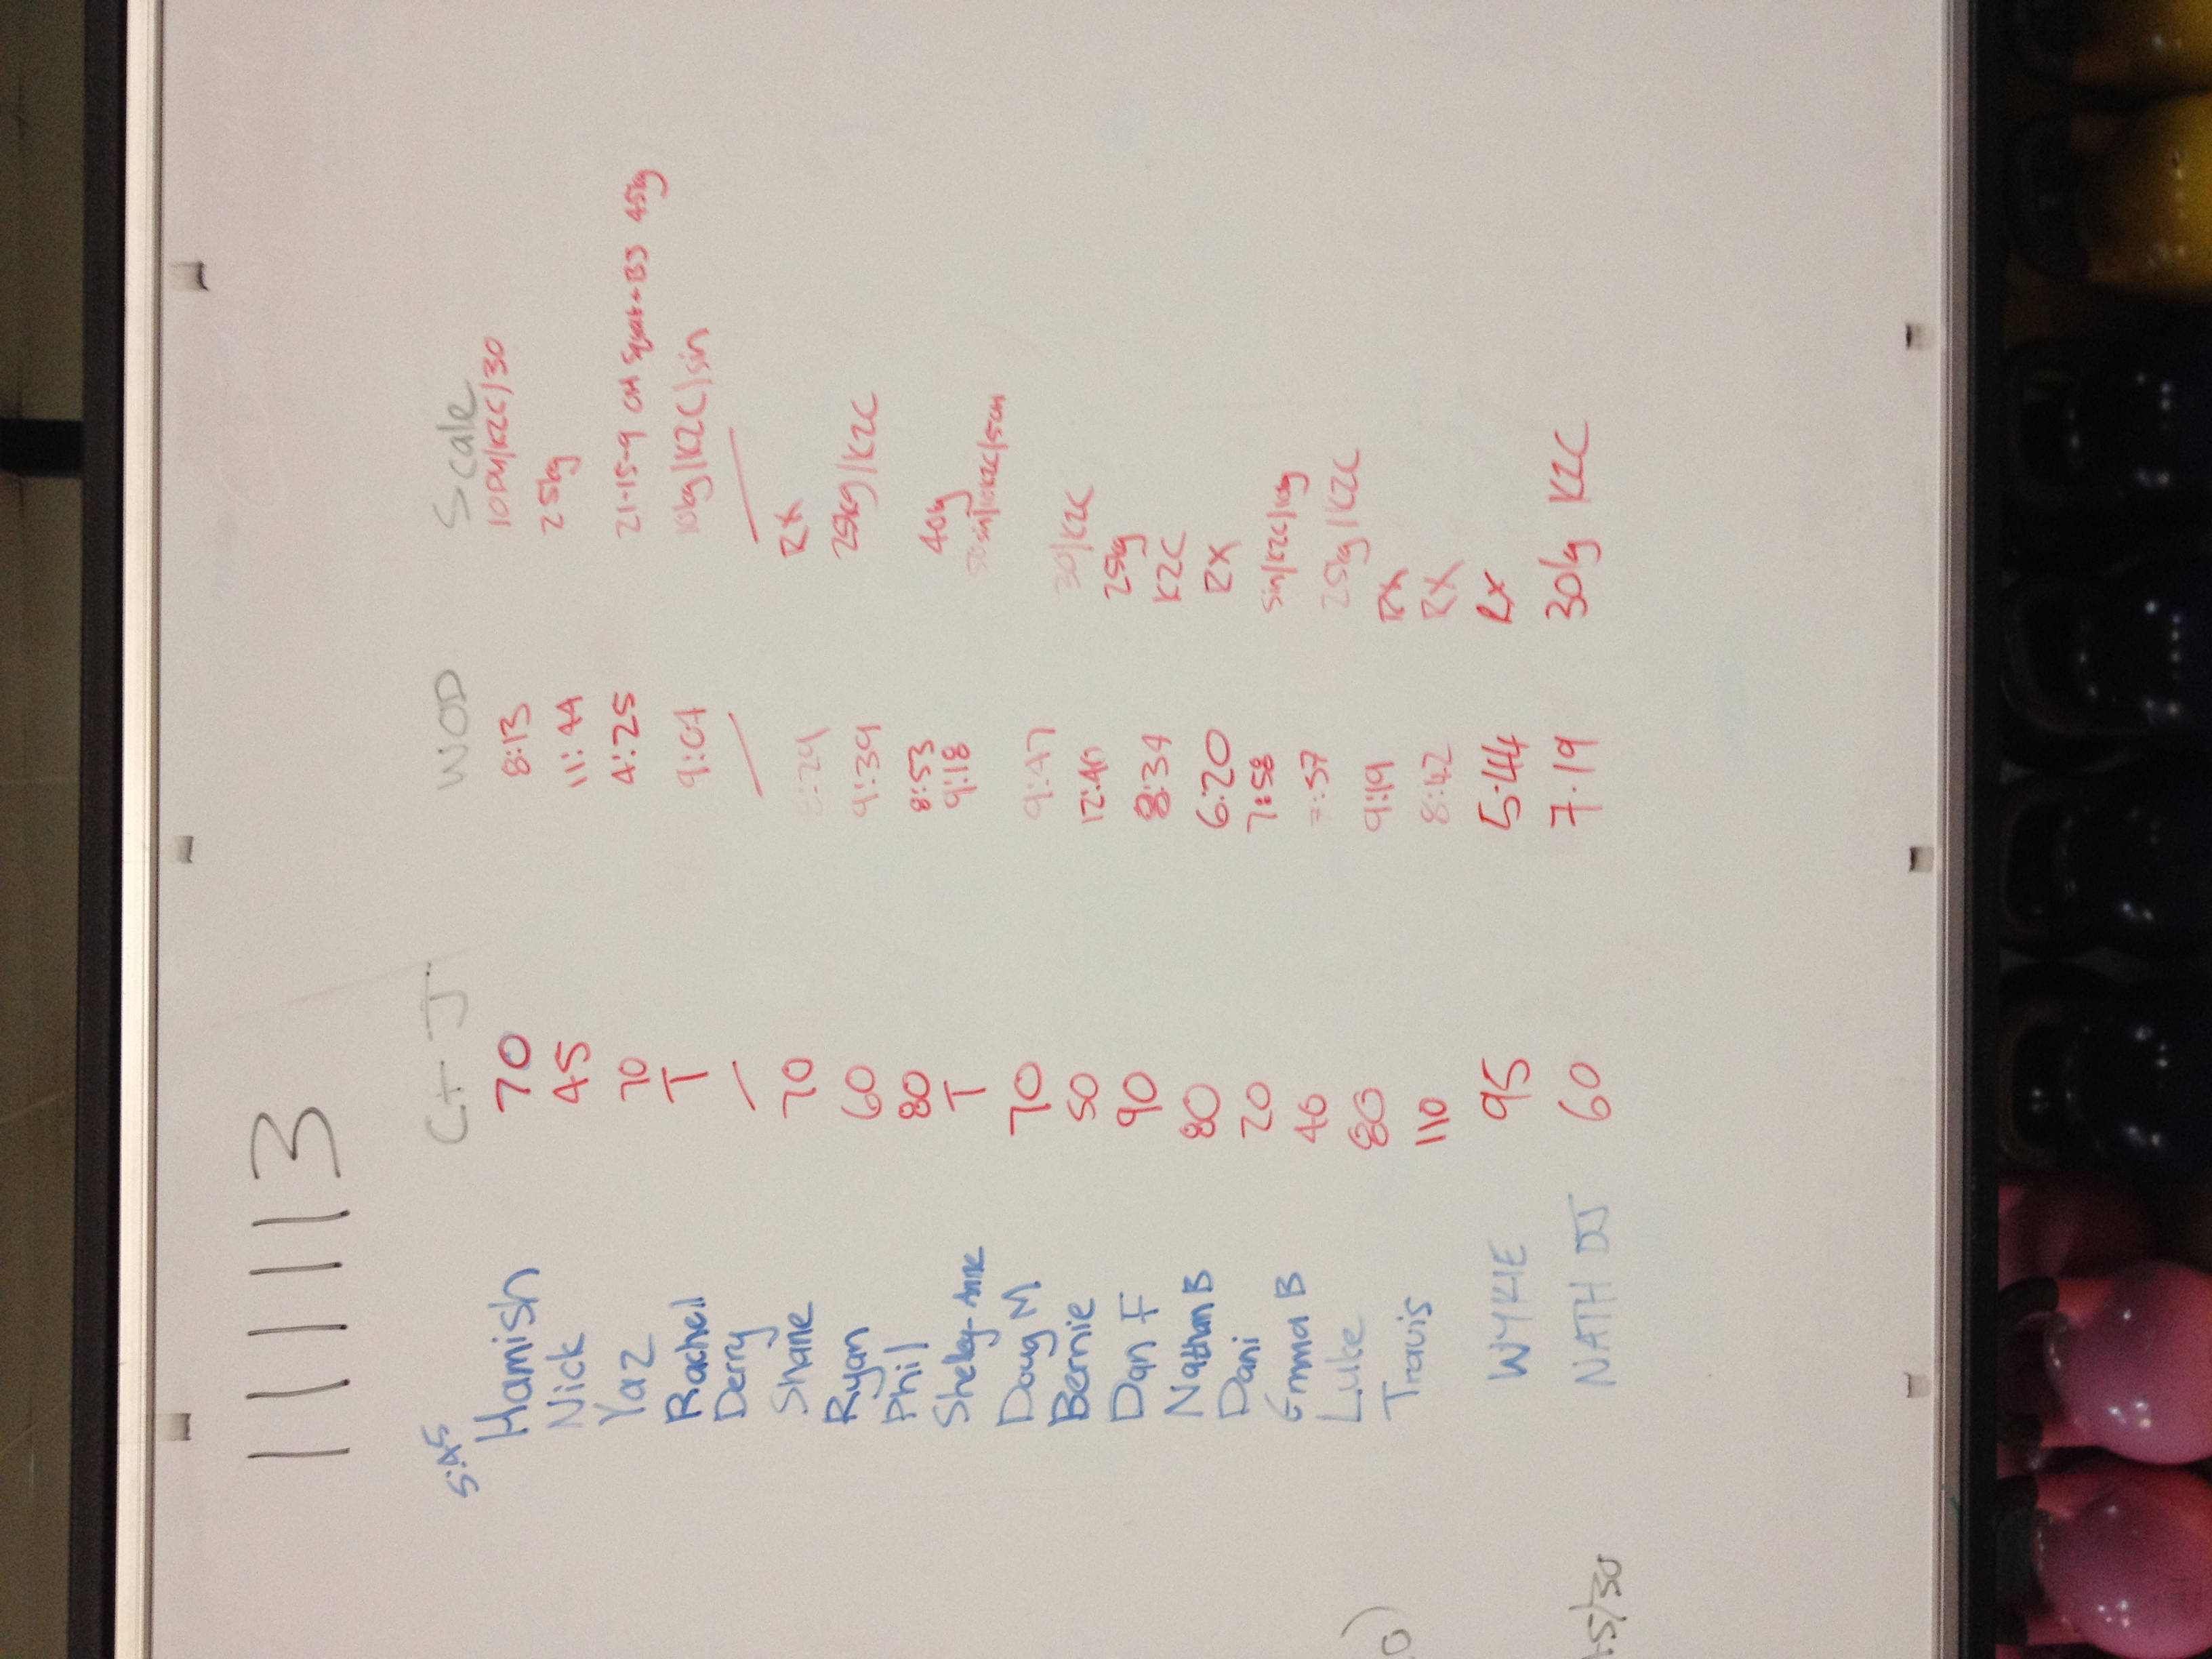 111113
C+J WOD Scale
5:45
Hamish 70 8:13 10PU/K2C/30
Nick 45 11:44 25kg
Yaz 70 4:25 21-15-9 OH Squat + BJ 45kg
Rachel T 9:04 10kg/K2C/sin
Derry / / /
Shane 70 Rx
Ryan 60 9:39 25kg/K2C
Phil 80 8:53 40kg
Shelley-Anne T 9:18
Doug M 70 9:47 30/K2C
Bernie 50 12:40 25kg
Dan F 90 8:34 K2C
Nathan B 80 6:20 Rx
Dani 20 7:58 sin/K2C/10kg
Emma B 40 25kg/K2C
Luke 80 9:19 Rx
Travis 110 8:42 Rx
WYKIE 95 5:44 Rx
NATH DJ 60 7:19 30kg K2C